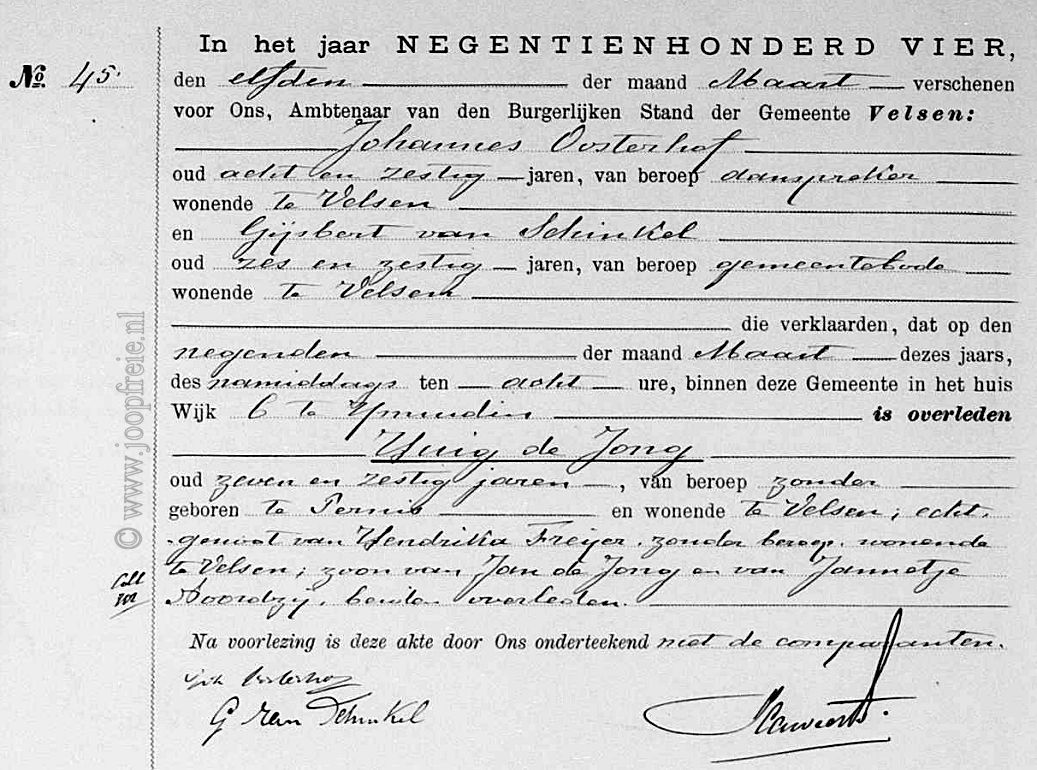 In het jaar NEGENTIENHONDERD VIER,
No. 45. den elfden der maand Maart verschenen
voor Ons, Ambtenaar van den Burgerlijken Stand der Gemeente Velsen:
Johannes Oosterhof
oud acht en zestig jaren, van beroep aanspreker
wonende te Velsen
en Gijsbert van Schinkel
oud zes en zestig jaren, van beroep gemeentebode
wonende te Velsen
die verklaarden, dat op den
negenden der maand Maart dezes jaars,
des namiddags ten acht ure, binnen deze Gemeente in het huis
Wijk 6 te Ymuiden is overleden
Huig de Jong
oud zeven en zestig jaren, van beroep zonder
geboren te Pernis en wonende te Velsen; echt-
genoot van Hendrika Freijer, zonder beroep, wonende
te Velsen; zoon van Jan de Jong en van Jannetje
Noordzij, beiden overleden.
Na voorlezing is deze akte door Ons onderteekend met de comparanten.
Joh Oosterhof
G van Schinkel
© www.joopfreie.nl